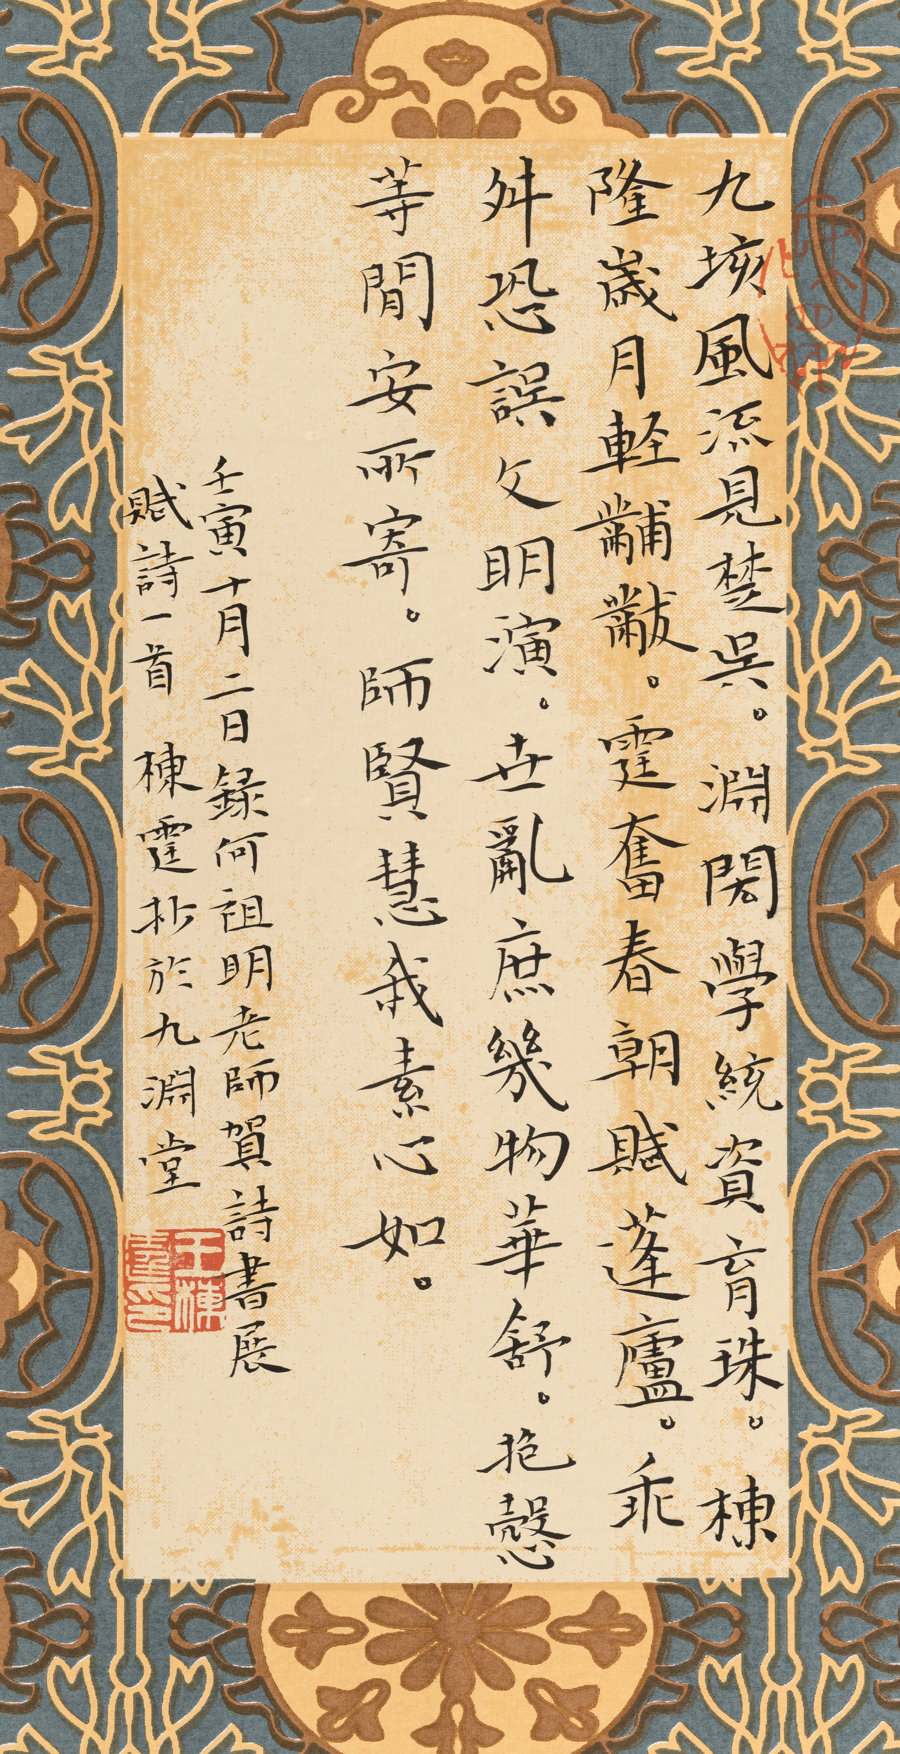 九垓風流見楚吳。淵閎學統資育珠。棟
隆歲月軽黼黻。霆奮春朝賦蓬廬。乖
舛恐誤文明演。世亂庶幾物華舒。抱慤
等閒安所寄。師賢慧我素心如。
壬寅十月二日録何祖明老師賀詩書展
賦詩一首 棟霆抄於九淵堂
王棟霆印